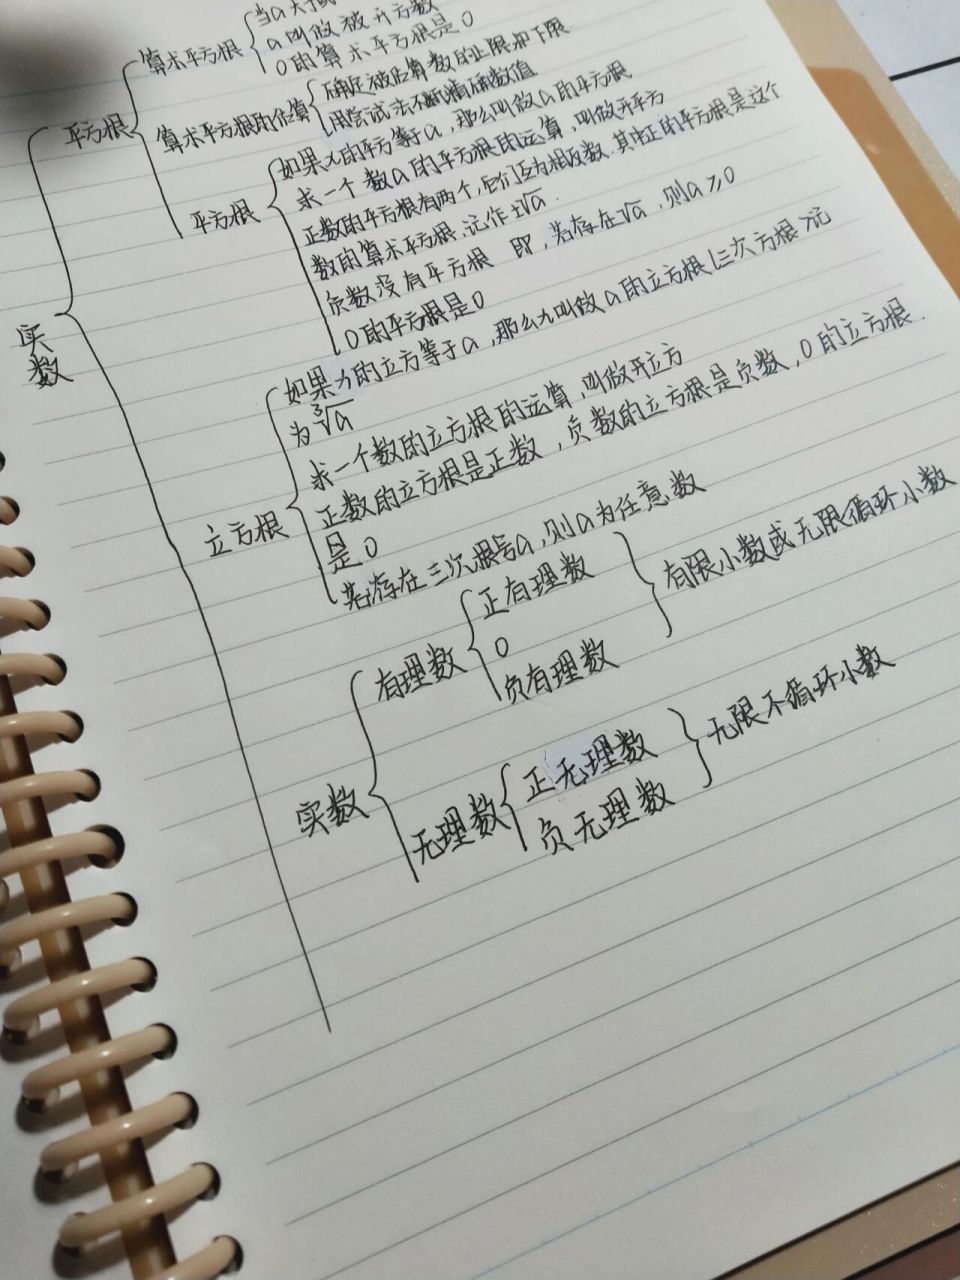 算术平方根
a叫做被开方数
0的算术平方根是0
平方根
算术平方根的估算
确定被估算数的上限和下限
用尝试法不断精确数值
平方根
如果x的平方等于a,那么叫做a的平方根
求一个数a的平方根的运算,叫做开平方
正数的平方根有两个,它们互为相反数.其中正的平方根是这个
数的算术平方根,记作±√a.
负数没有平方根 即,若存在√a,则a≥0
0的平方根是0
实数
立方根
如果 的立方等于a,那么 叫做a的立方根(三次方根)记
为³√a
求一个数的立方根的运算,叫做开立方
正数的立方根是正数,负数的立方根是负数,0的立方根
是0
若存在三次根号a,则a为任意数
实数
有理数
正有理数
0
负有理数
有限小数或无限循环小数
无理数
正无理数
负无理数
无限不循环小数